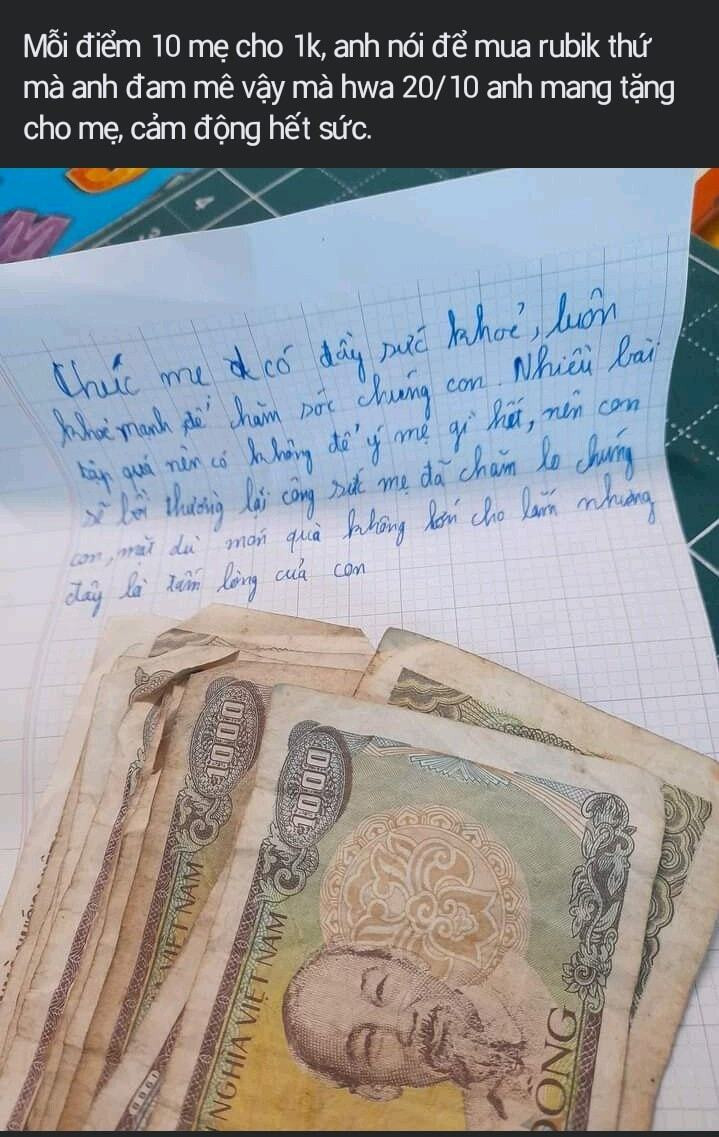 Mỗi điểm 10 mẹ cho 1k, anh nói để mua rubik thứ
mà anh đam mê vậy mà hwa 20/10 anh mang tặng
cho mẹ, cảm động hết sức.
Chúc mẹ có đầy sức khoẻ, luôn
khoẻ mạnh để chăm sóc chúng con. Nhiều bài
tập quá nên có không để ý mẹ gì hết, nên con
sẽ bồi thường lại công sức mẹ đã chăm lo chúng
con, mặt dù món quà không lớn cho lắm nhưng
đây là tấm lòng của con
1000
1000
VIỆT NAM
NGHĨA VIỆT NAM
1000
ĐỒNG